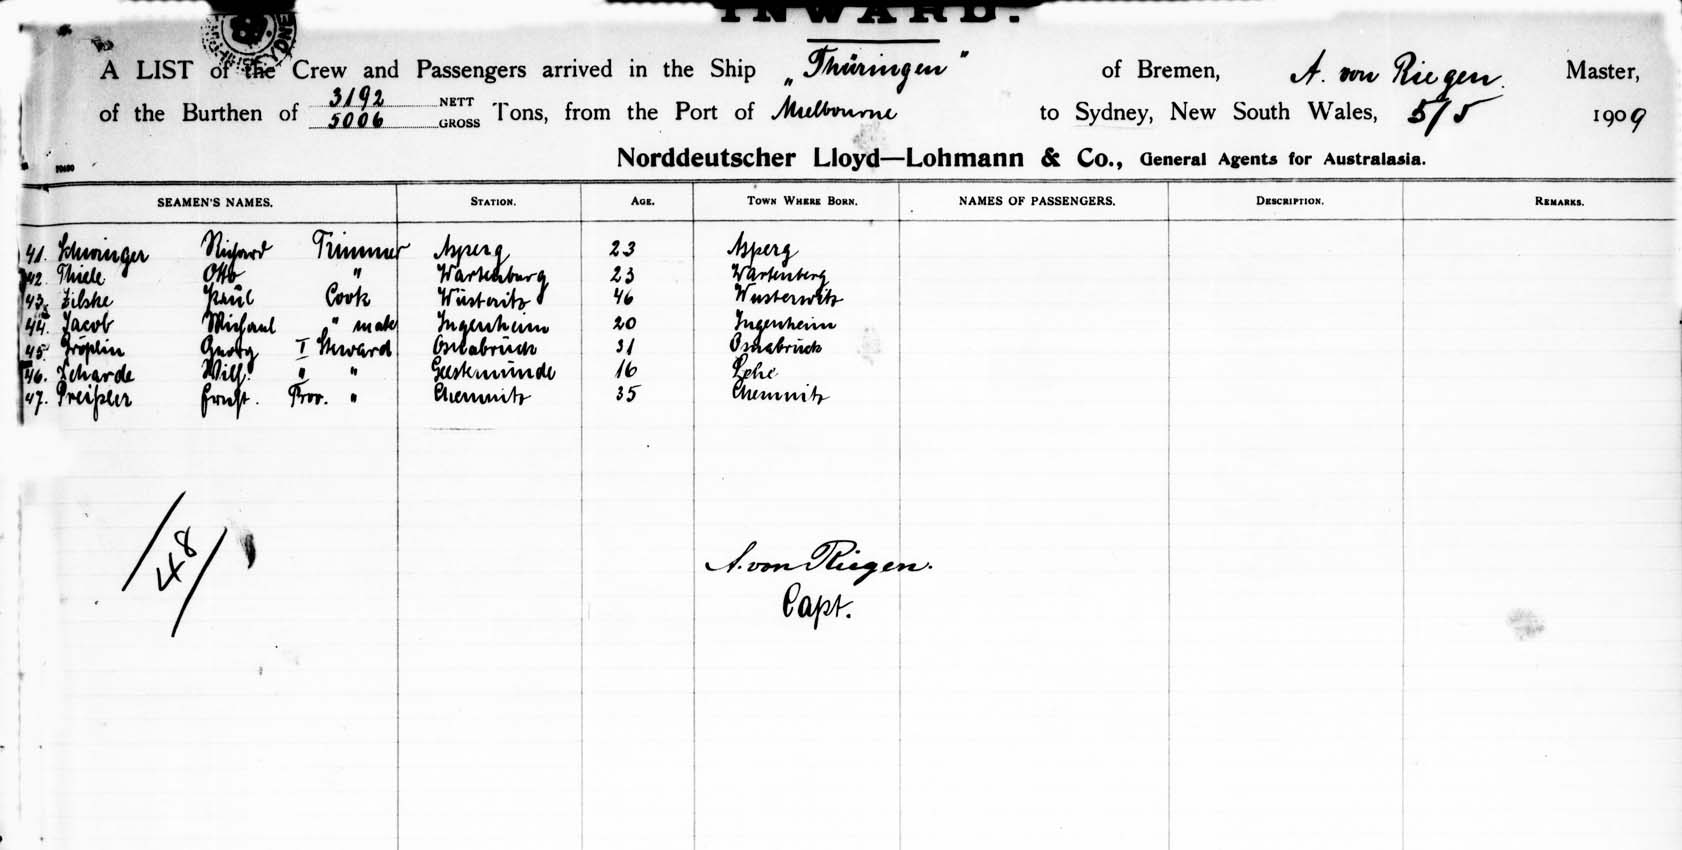 INWARD.
A LIST of the Crew and Passengers arrived in the Ship „Thüringen" of Bremen, A. von Riegen. Master,
of the Burthen of 3192 NETT 5006 GROSS Tons, from the Port of Melbourne to Sydney, New South Wales, 5/5 1909
Norddeutscher Lloyd—Lohmann & Co., General Agents for Australasia.
SEAMEN'S NAMES. STATION. AGE. TOWN WHERE BORN. NAMES OF PASSENGERS. DESCRIPTION. REMARKS.
41. Schwinger Richard Trimmer Asperg 23 Asperg
42. Thiele Otto " Wartenburg 23 Wartenberg
43. Zilske Paul Cook Wüsteritz 46 Wusterwitz
44. Jacob Michael " mate Ingenheim 20 Ingenheim
45. Gröplin Georg I Steward Osnabrück 31 Osnabrück
46. Wilh. " " Geestemünde 16 Lehe
47. Preißler Ernst. Prov. " Chemnitz 35 Chemnitz
/48/
A. von Riegen.
Capt.